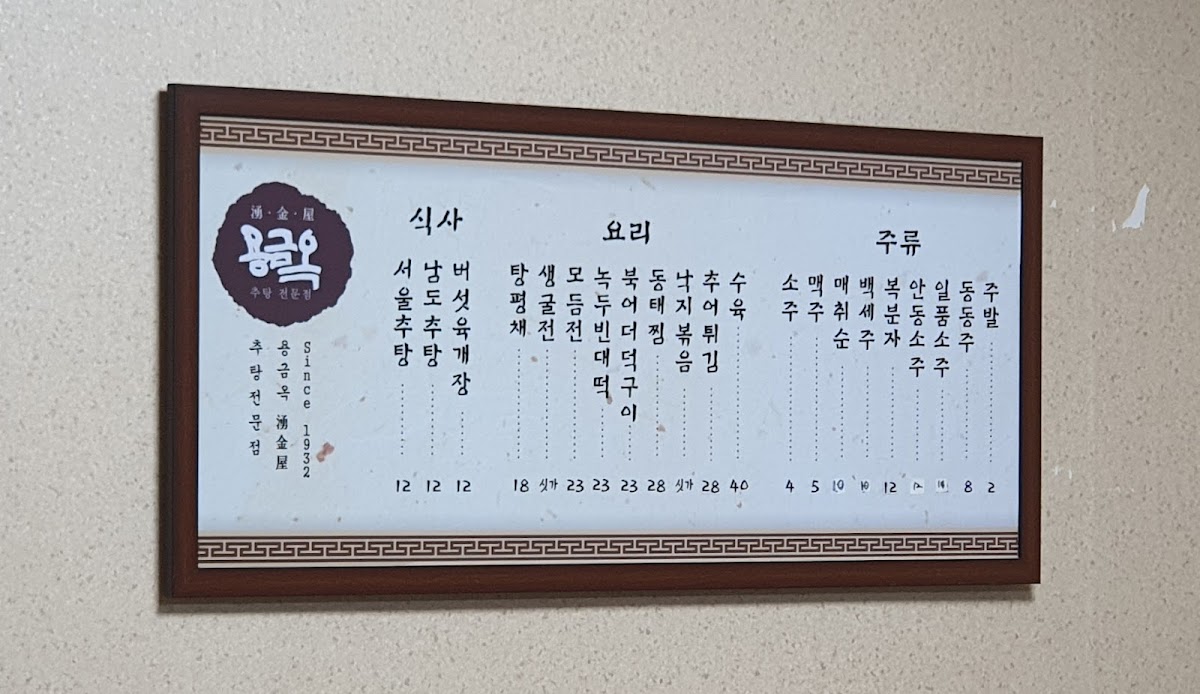 湧·金·屋
용금옥
추탕 전문점
Since 1932
용금옥 湧金屋
추탕전문점
식사
서울추탕 12
남도추탕 12
버섯육개장 12
요리
탕평채 18
생굴전 싯가
모듬전 23
녹두빈대떡 23
북어더덕구이 23
동태찜 28
낙지볶음 싯가
추어튀김 28
수육 40
주류
소주 4
맥주 5
매취순 10
백세주 10
복분자 12
안동소주 12
일품소주
동동주 8
주발 2